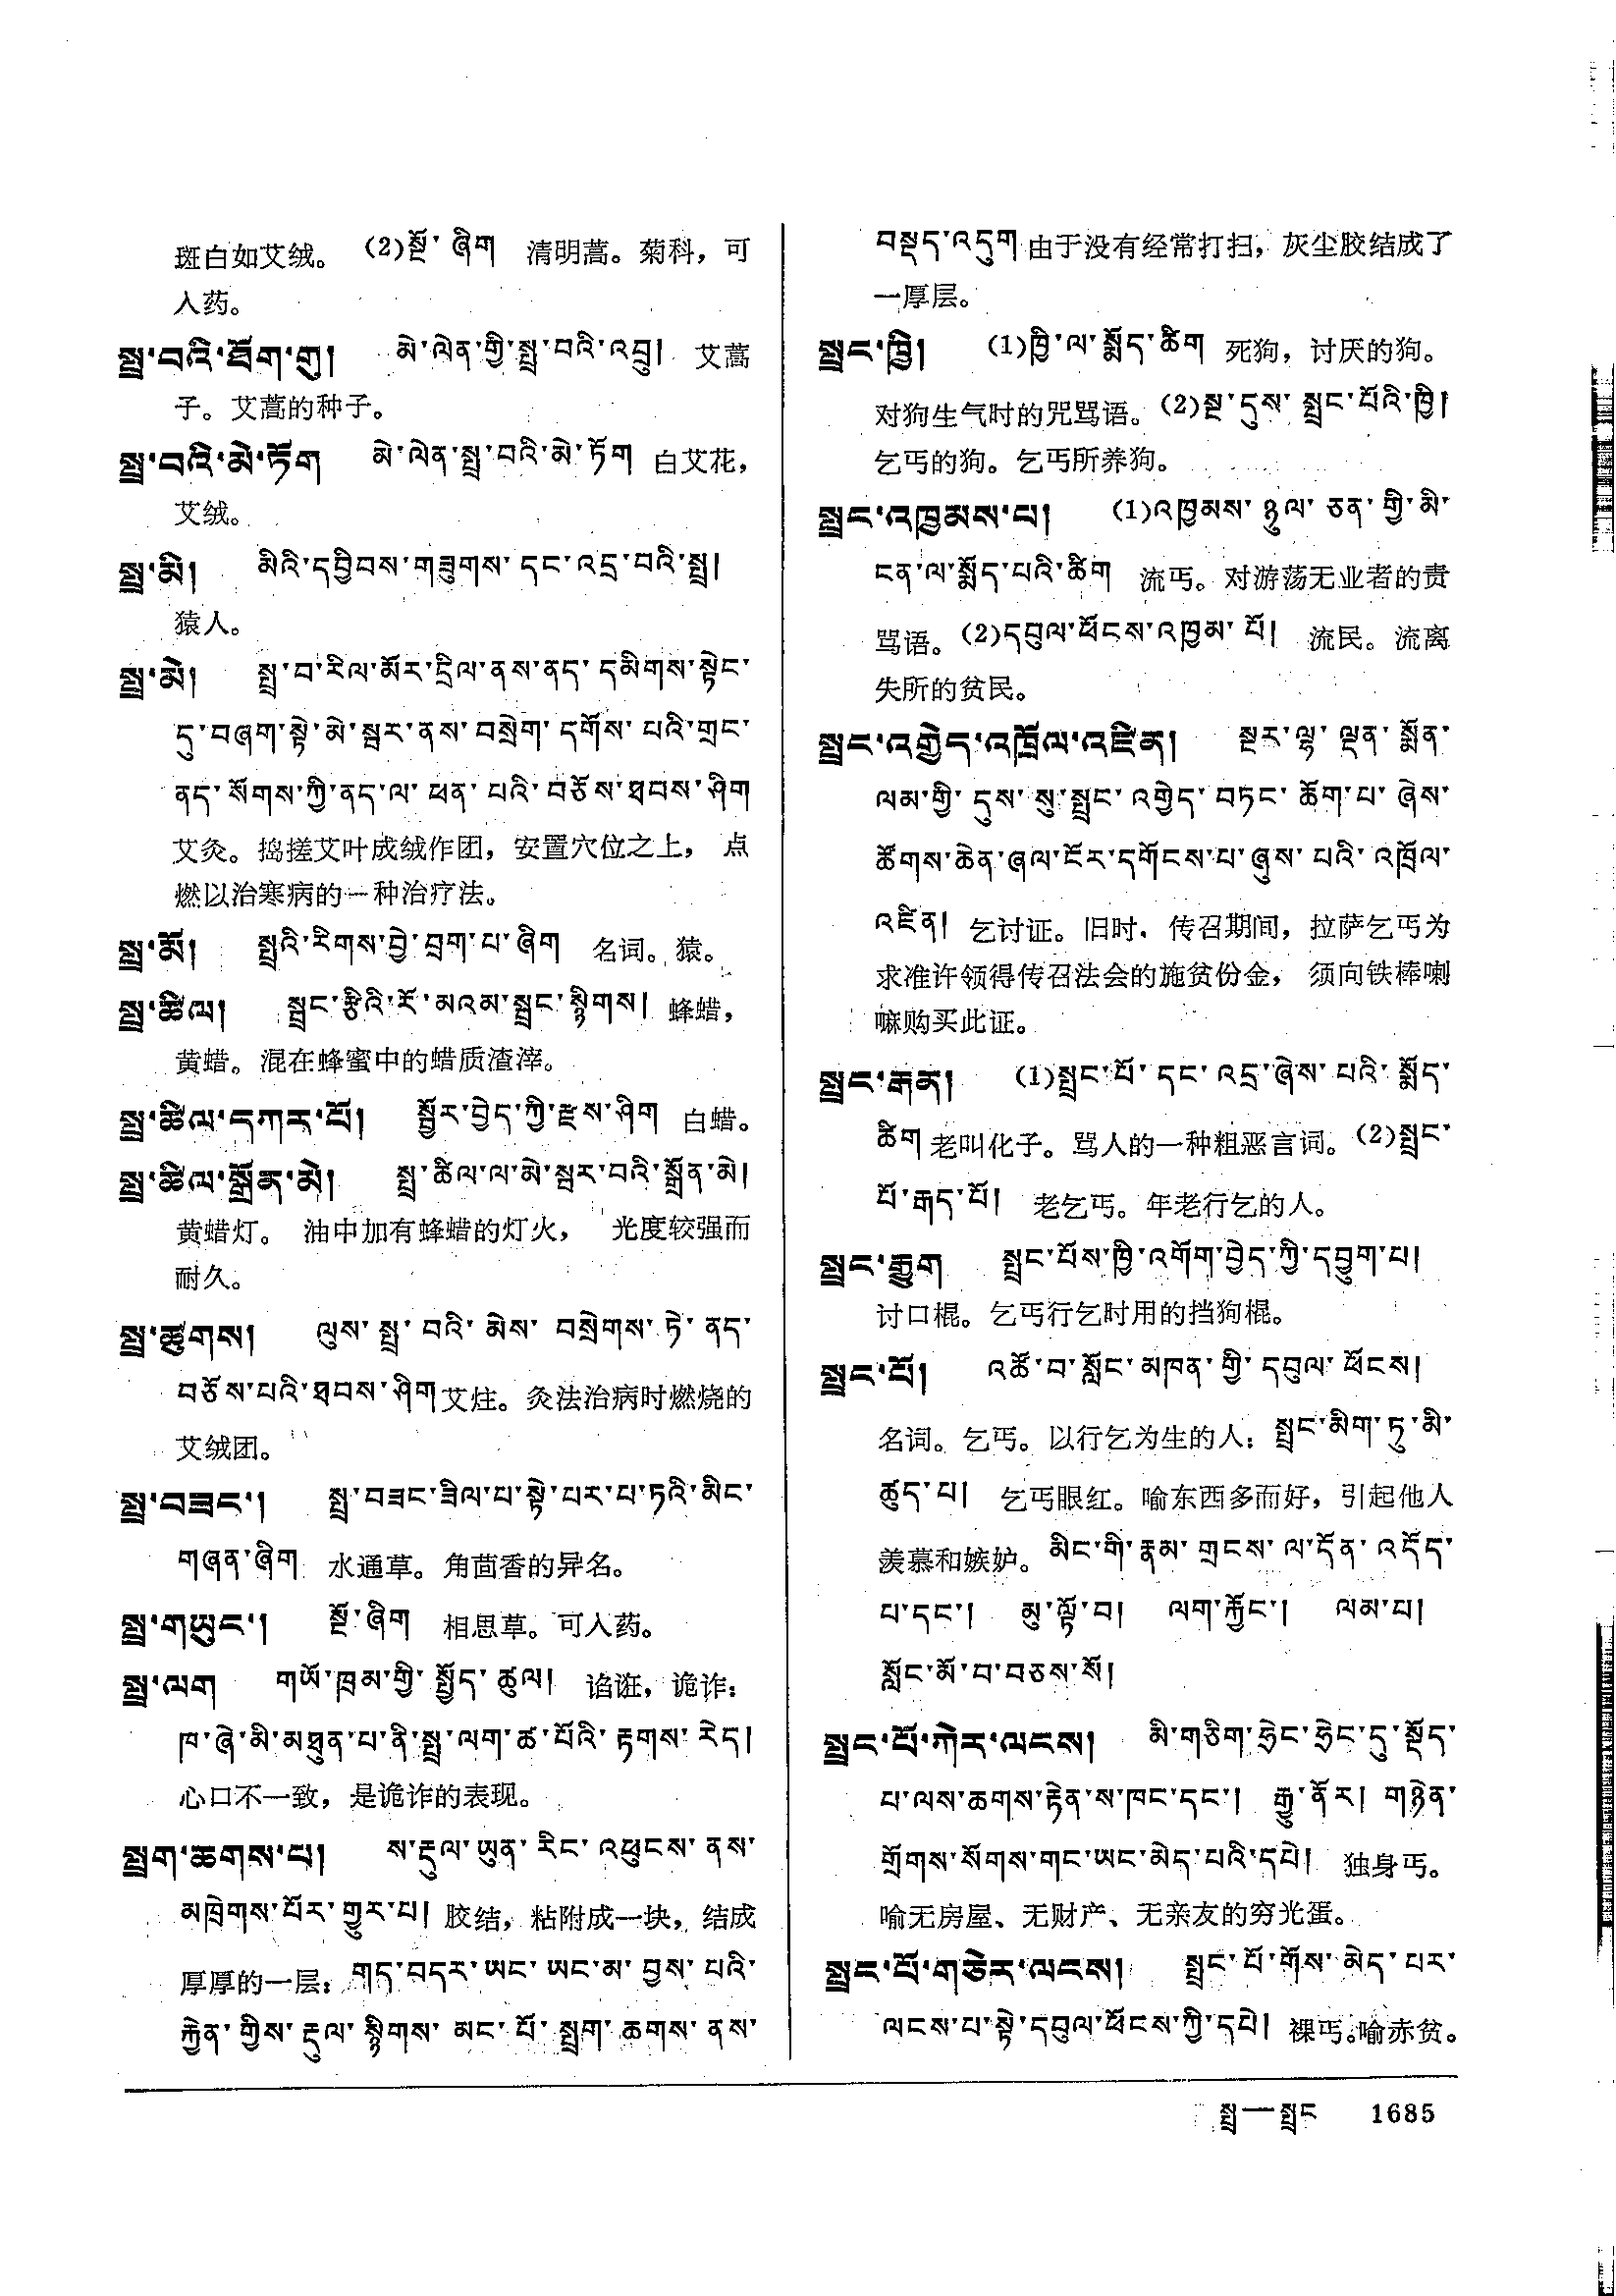 斑白如艾绒。 (2)སྔོ་ ཞིག 清明蒿。菊科，可
入药。
སྤྲ་བའི་ཐོག་གུ། མེ་ལེན་གྱི་སྤྲ་བའི་འབྲུ། 艾蒿
子。艾蒿的种子。
སྤྲ་བའི་མེ་ཏོག མེ་ལེན་སྤྲ་བའི་མེ་ཏོག 白艾花，
艾绒。
སྤྲ་མི། མིའི་དབྱིབས་གཟུགས་དང་འདྲ་བའི་སྤྲ།
猿人。
སྤྲ་མེ། སྤྲ་བ་རིལ་མོར་དྲིལ་ནས་ནད་ དམིགས་སྟེང་
དུ་བཞག་སྟེ་མེ་སྦར་ནས་བསྲེག་ དགོས་ པའི་གྲང་
ནད་ སོགས་ཀྱི་ནད་ལ་ ཕན་ པའི་བཅོས་ཐབས་ཤིག
艾灸。捣搓艾叶成绒作团，安置穴位之上， 点
燃以治寒病的一种治疗法。
སྤྲ་མོ། སྤྲའི་རིགས་བྱེ་བྲག་པ་ཞིག 名词。猿。
སྤྲ་ཚིལ། སྦྲང་རྩིའི་རོ་མའམ་སྦྲང་སྙིགས། 蜂蜡，
黄蜡。混在蜂蜜中的蜡质渣滓。
སྤྲ་ཚིལ་དཀར་པོ། སྦྱོར་བྱེད་ཀྱི་རྫས་ཤིག 白蜡。
སྤྲ་ཚིལ་སྒྲོན་མེ། སྤྲ་ཚིལ་ལ་མེ་སྦར་བའི་སྒྲོན་མེ།
黄蜡灯。 油中加有蜂蜡的灯火， 光度较强而
耐久。
སྤྲ་ཚུགས། ལུས་ སྤྲ་ བའི་ མེས་ བསྲེགས་ ཏེ་ ནད་
བཅོས་པའི་ཐབས་ཤིག 艾炷。灸法治病时燃烧的
艾绒团。
སྤྲ་བཟང་། སྤྲ་བཟང་ཟིལ་པ་སྟེ་པར་པ་ཏའི་མིང་
གཞན་ཞིག 水通草。角茴香的异名。
སྤྲ་གཡུང་། སྔོ་ཞིག 相思草。可入药。
སྤྲ་ལག གཡོ་ཁྲམ་གྱི་ སྤྱོད་ ཚུལ། 谄诳，诡诈：
ཁ་ཞེ་མི་མཐུན་པ་ནི་སྤྲ་ལག་ཚ་པོའི་ རྟགས་ རེད།
心口不一致，是诡诈的表现。
སྤྲག་ཆགས་པ། ས་རྡུལ་ཡུན་ རིང་ འཕུངས་ ནས་
མཁྲེགས་པོར་གྱུར་པ། 胶结，粘附成一块，结成
厚厚的一层：གད་བདར་ཡང་ ཡང་མ་ བྱས་ པའི་
རྐྱེན་ གྱིས་ རྡུལ་ སྙིགས་ མང་ པོ་ སྤྲག་ ཆགས་ ནས་
བསྡད་འདུག 由于没有经常打扫，灰尘胶结成了
一厚层。
སྤྲང་ཁྱི། (1)ཁྱི་ལ་སྨོད་ཚིག 死狗，讨厌的狗。
对狗生气时的咒骂语。(2)སྔ་དུས་ སྤྲང་པོའི་ཁྱི།
乞丐的狗。乞丐所养狗。
སྤྲང་འཁྱམས་པ། (1)འཁྱམས་ ཉུལ་ ཅན་ གྱི་ མི་
ངན་ལ་སྨོད་པའི་ཚིག 流丐。对游荡无业者的责
骂语。(2)དབུལ་ཕོངས་འཁྱམ་ པོ། 流民。流离
失所的贫民。
སྤྲང་འགྱེད་འཁྲོལ་འཛིན། སྔར་ ལྷ་ ལྡན་ སྨོན་
ལམ་གྱི་ དུས་ སུ་སྤྲང་ འགྱེད་ བཏང་ ཆོག་པ་ ཞེས་
ཚོགས་ཆེན་ཞལ་ངོར་དགོངས་པ་ཞུས་ པའི་ འཁྲོལ་
འཛིན། 乞讨证。旧时，传召期间，拉萨乞丐为
求准许领得传召法会的施贫份金， 须向铁棒喇
嘛购买此证。
སྤྲང་རྒན། (1)སྤྲང་པོ་ དང་ འདྲ་ཞེས་ པའི་ སྨོད་
ཚིག 老叫化子。骂人的一种粗恶言词。(2)སྤྲང་
པོ་རྒད་པོ། 老乞丐。年老行乞的人。
སྤྲང་རྒྱུག སྤྲང་པོས་ཁྱི་འགོག་བྱེད་ཀྱི་དབྱུག་པ།
讨口棍。乞丐行乞时用的挡狗棍。
སྤྲང་པོ། འཚོ་བ་སློང་མཁན་གྱི་ དབུལ་ ཕོངས།
名词。乞丐。以行乞为生的人：སྤྲང་མིག་ ཏུ་མི་
ཚུད་པ། 乞丐眼红。喻东西多而好，引起他人
羡慕和嫉妒。མིང་གི་རྣམ་ གྲངས་ ལ་དོན་ འདོད་
པ་དང་། མུ་ལྟོ་བ། ལག་རྐྱོང་། ལམ་པ།
སློང་མོ་བ་བཅས་སོ།
སྤྲང་པོ་ཀེར་ལངས། མི་གཅིག་ཧྲེང་ཧྲེང་དུ་སྡོད་
པ་ལས་ཆགས་རྟེན་ས་ཁང་དང་། རྒྱུ་ནོར། གཉེན་
གྲོགས་སོགས་གང་ཡང་མེད་པའི་དཔེ། 独身丐。
喻无房屋、无财产、无亲友的穷光蛋。
སྤྲང་པོ་གཅེར་ལངས། སྤྲང་ པོ་ གོས་ མེད་ པར་
ལངས་པ་སྟེ་དབུལ་ཕོངས་ཀྱི་དཔེ། 裸丐。喻赤贫。
སྤྲ—སྤྲང 1685